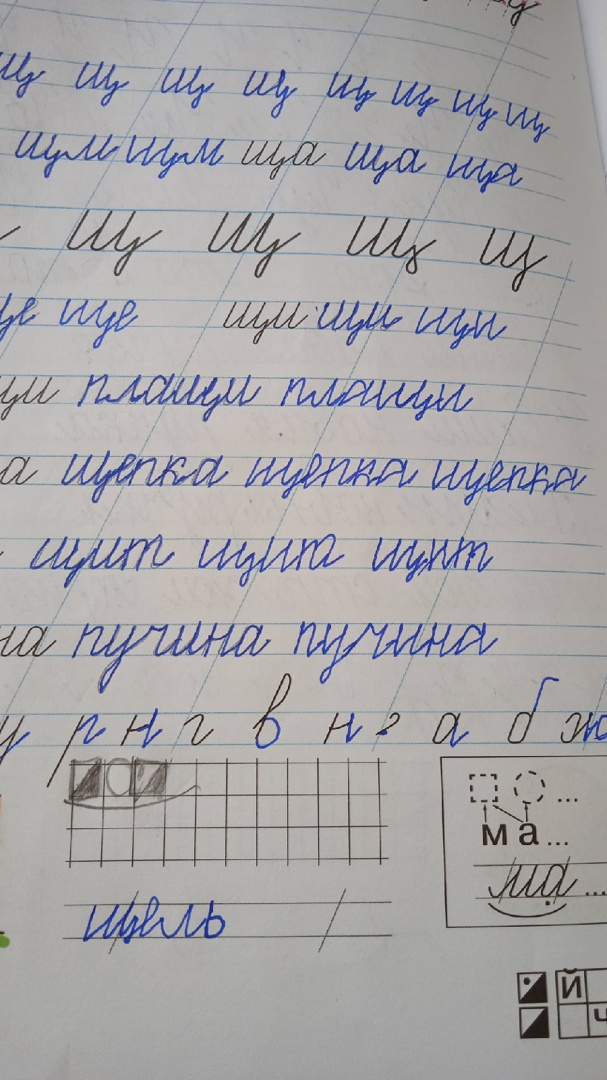 щ щ щ щ щ щ щ щ
щи щи ща ща ща
Щ Щ Щ Щ
ще ще щи щи щи
щи плащи плащи
а щепка щепка щепка
щит щит щит
на пучина пучина
у р н г в н г а б ж
м а ...
ма ...
щель
й
ч